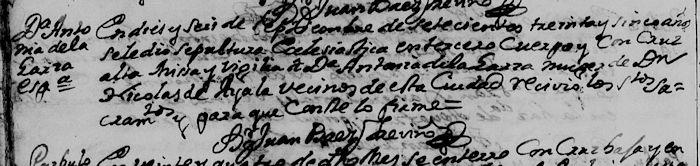 Br Juan Baez Treviño
Da Anto En dies y seis de Septiembre de setecientos treinta y sinco años
nia de la se le dio sepultura Eclesiastica en tercero Cuerpo y Con Cruz
Garza alta Missa y Vigilia a Da Antonia de la Garza muger de Dn
Espa Nicolas de Ayala vecinos de esta Ciudad recivio los Stos Sa
cramtos y para que Conste lo firme=
Br Juan Baez Treviño
Parbulo En veinte y quatro de se enterro Con Cruz baxa y en